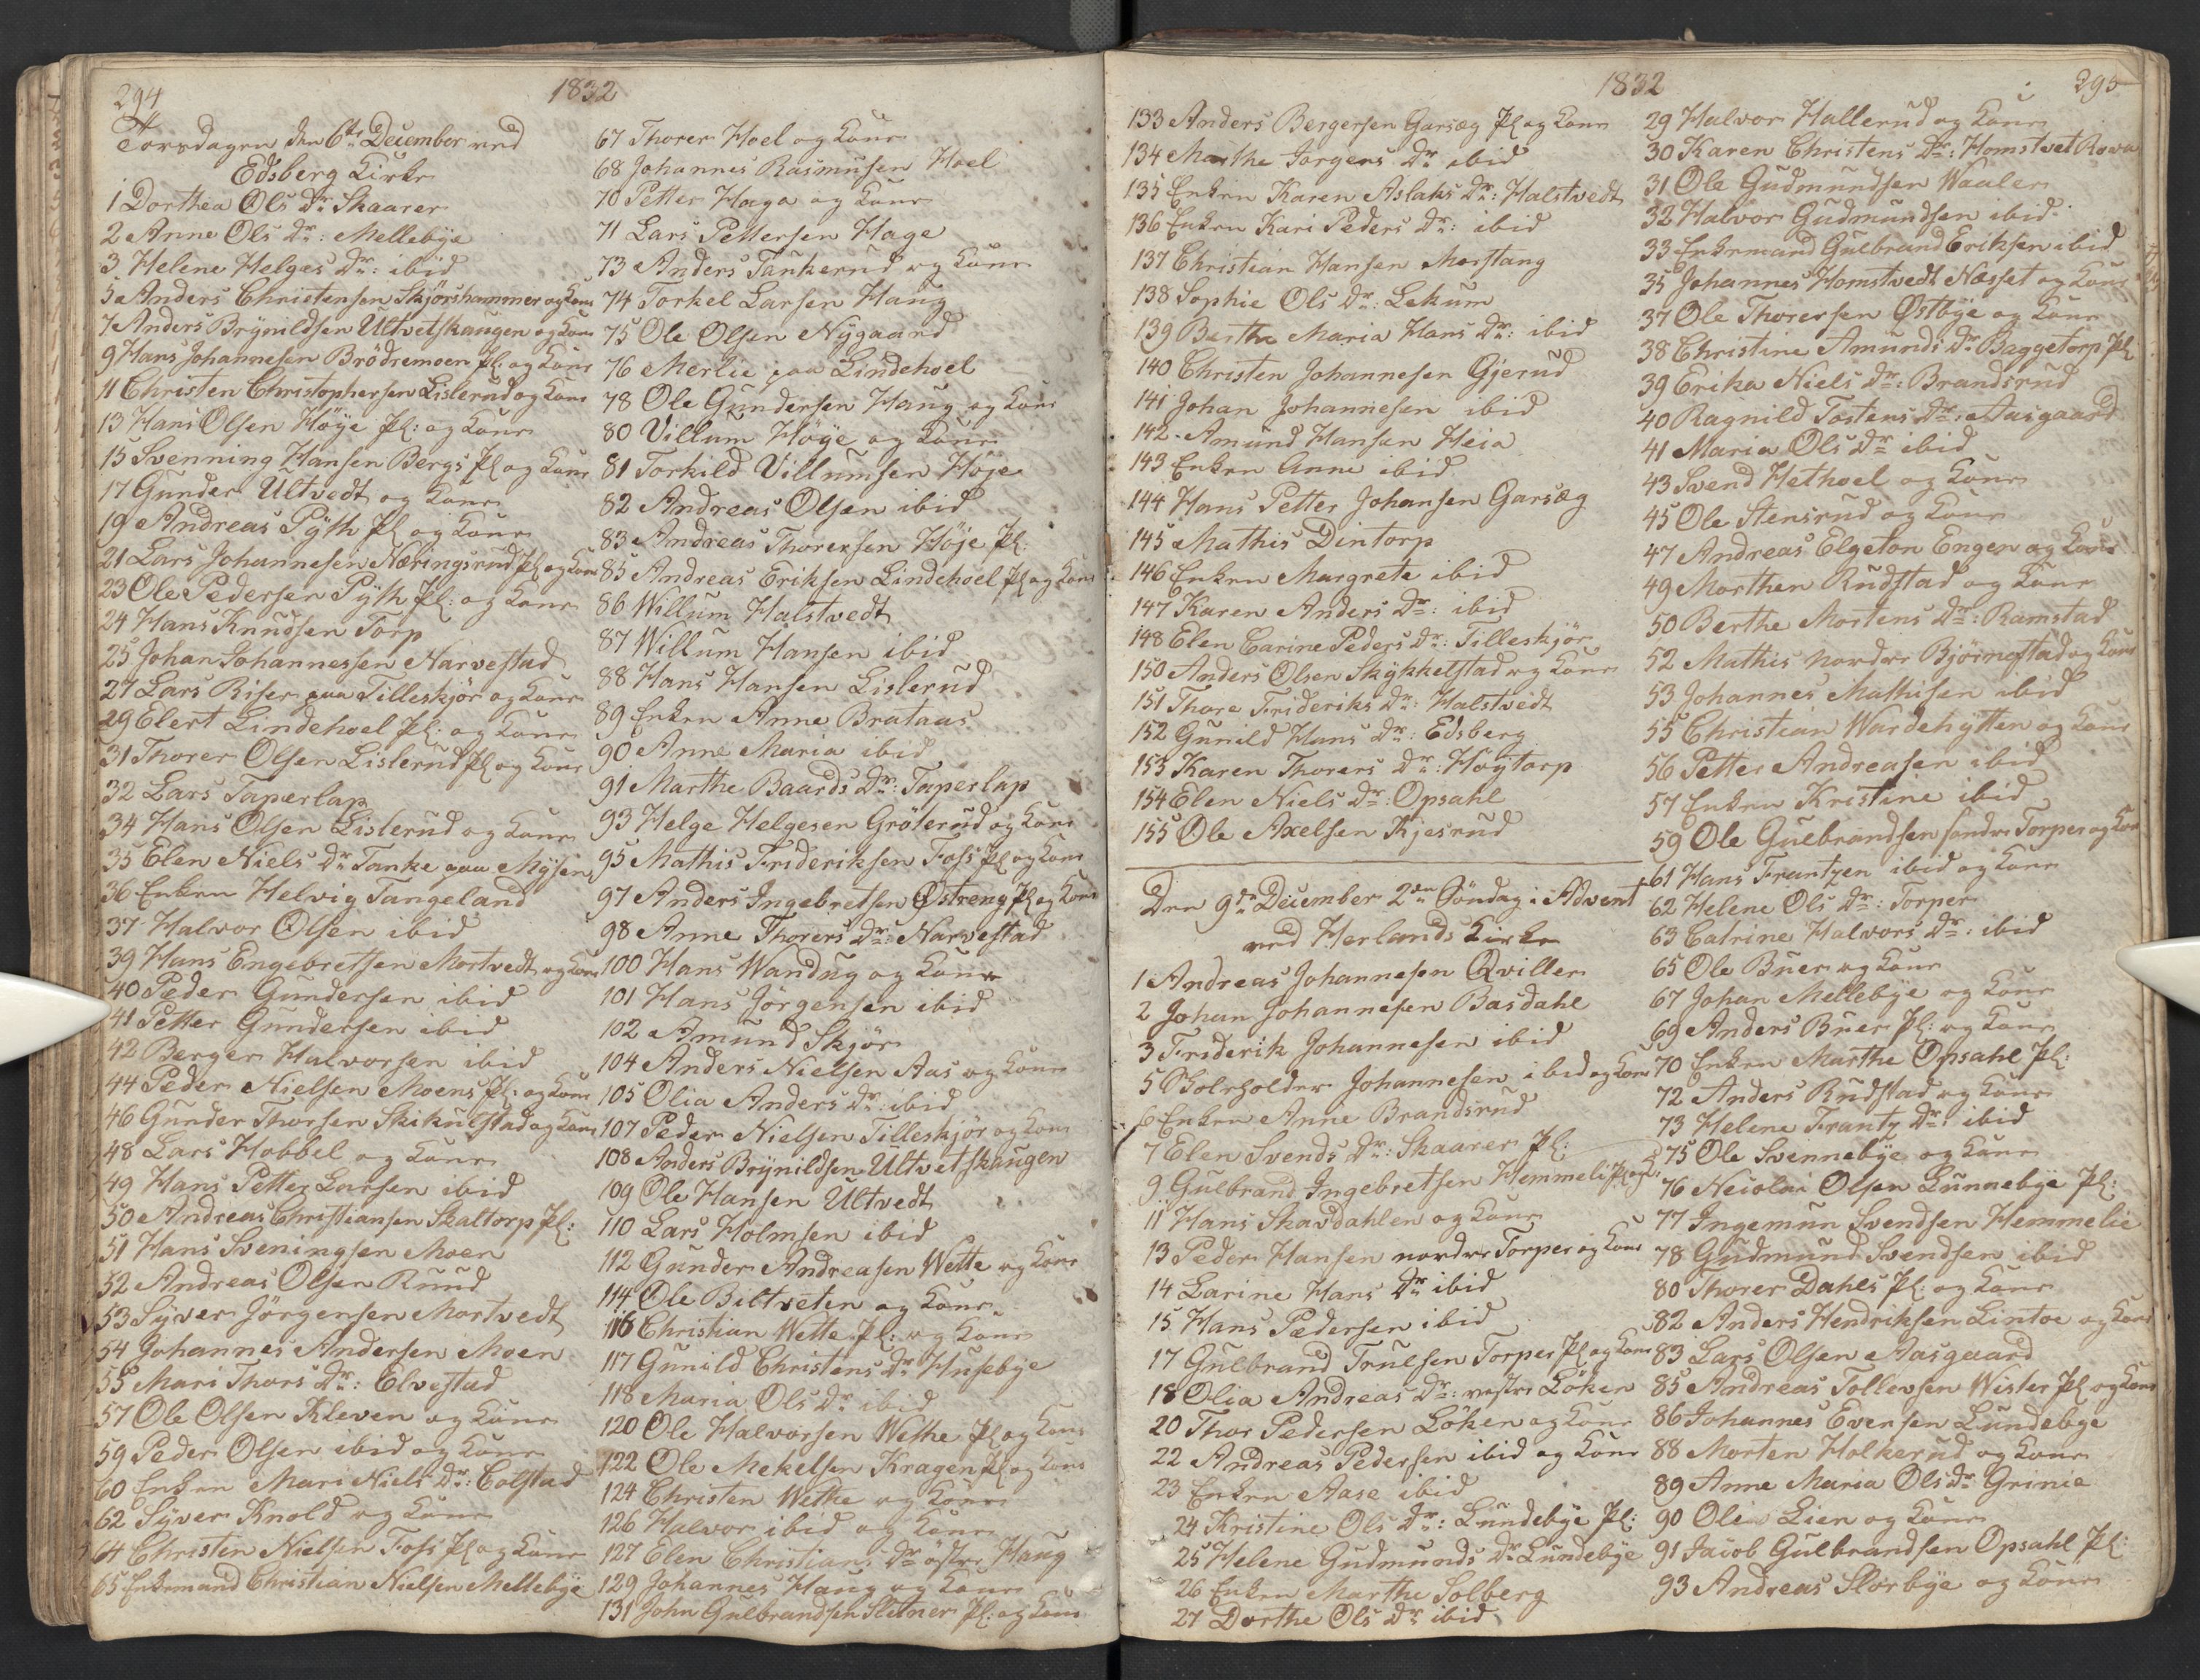 294
1832
Torsdagen den 6te December ved
Edsberg Kirke
1 Dorthea Ols Dr Skaarer
2 Anne Ols Dr: Mellebye
3 Helene Helges Dr: ibid
5 Anders Christensen Skjørshammer og Kone
7 Anders Brynildsen Ultvetskaugen og Kone
9 Hans Johannesen Brødremoen Pl: og Kone
11 Christen Christophersen Lislerud og Kone
13 Hans Olsen Høye Pl: og Kone
15 Svenning Hansen Bergs Pl og Kone
17 Gunder Ultvedt og Kone
19 Andreas Pyth Pl og Kone
21 Lars Johannesen Næringsrud Pl og Kone
23 Ole Pedersen Pyth Pl: og Kone
24 Hans Knudsen Torp
25 Johan Johannessen Narvestad
27 Lars Riser paa Tilleskjør og Kone
29 Elert Lindehoel Pl: og Kone
31 Thorer Olsen Lislerud Pl og Kone
32 Lars Taperlap
34 Hans Olsen Lislerud og Kone
35 Elen Niels Dr Tanke paa Mysen
36 Enken Helvig Tangeland
37 Halvor Olsen ibid
39 Hans Engebretsen Mortvedt og Kone
40 Peder Gundersen ibid
41 Petter Gundersen ibid
42 Berger Halvorsen ibid
44 Peder Nielsen Moens Pl: og Kone
46 Gunder Thorsen Skikulstad og Kone
48 Lars Hobbel og Kone
49 Hans Petter Larsen ibid
50 Andreas Christiansen Skaltorp Pl:
51 Hans Sveningsen Moen
52 Andreas Olsen Ruud
53 Syver Jørgensen Mortvedt
54 Johannes Andersen Moen
55 Mari Thors Dr: Elvestad
57 Ole Olsen Kleven og Kone
59 Peder Olsen ibid og Kone
60 Enken Mari Niels Dr: Colstad
62 Syver Knold og Kone
64 Christen Nielsen Foss Pl og Kone
65 Enkemand Christian Nielsen Mellebye
67 Thorer Hoel og Kone
68 Johannes Rasmusen Hoel
70 Petter Haga og Kone
71 Lars Pettersen Hage
73 Anders Tankerud og Kone
74 Torkel Larsen Haug
75 Ole Olsen Nygaard
76 Merlie paa Lindehoel
78 Ole Gundersen Haug og Kone
80 Villum Høye og Kone
81 Torkild Villumsen Høje
82 Andreas Olsen ibid
83 Andreas Thorersen Høje Pl:
85 Andreas Eriksen Lindehoel Pl og Kone
86 Willum Halstvedt
87 Willum Hansen ibid
88 Hans Hansen Lislerud
89 Enken Anne Brataas
90 Anne Maria ibid
91 Marthe Baards Dr: Taperlap
93 Helge Helgesen Grøterud og Kone
95 Mathis Frideriksen Foss Pl og Kone
97 Anders Ingebretsen Østreng Pl og Kone
98 Anne Thorers Dr: Narvestad
100 Hans Wandug og Kone
101 Hans Jørgensen ibid
102 Amund Skjør
104 Anders Nielsen Aas og Kone
105 Olia Anders Dr: ibid
107 Peder Nielsen Tilleskjør og Kone
108 Anders Brynildsen Ultvetskaugen
109 Ole Hansen Ultvedt
110 Lars Holmsen ibid
112 Gunder Andreasen Wette og Kone
114 Ole Biltveten og Kone
116 Christian Wette Pl: og Kone
117 Gunild Christens Dr Husebye
118 Maria Ols Dr ibid
120 Ole Halvorsen Wethe Pl og Kone
122 Ole Mekelsen Kragen Pl og Kone
124 Christen Wethe og Kone
126 Halvor ibid og Kone
127 Elen Christians Dr østre Haug
129 Johannes Haug og Kone
131 John Gulbrandsen Sletner Pl: og Kone
1832
295
133 Anders Bergersen Garsæg Pl og Kone
134 Marthe Jørgens Dr ibid
135 Enken Karen Aslaks Dr: Halstvedt
136 Enken Kari Peders Dr: ibid
137 Christian Hansen Morstang
138 Sophie Ols Dr: Lekum
139 Berthe Maria Hans Dr: ibid
140 Christen Johannesen Gjerud
141 Johan Johannesen ibid
142 Amund Hansen Heia
143 Enken Anne ibid
144 Hans Petter Johansen Garsæg
145 Mathis Dintorp
146 Enken Margrete ibid
147 Karen Anders Dr: ibid
148 Elen Carine Peders Dr: Tilleskjør
150 Anders Olsen Skykkelstad og Kone
151 Thore Frideriks Dr: Halstvedt
152 Gunild Hans Dr: Edsberg
153 Karen Thorers Dr: Høytorp
154 Elen Niels Dr: Opsahl
155 Ole Axelsen Kjesrud
Den 9de December 2den Søndag i Advent
ved Herlands Kirke
1 Andreas Johannesen Qviller
2 Johan Johannesen Basdahl
3 Friderik Johannesen ibid
5 Johannesen ibid og Kone
6 Enken Anne Brandsrud
7 Elen Svends Dr: Skaarer Pl:
9 Gulbrand Ingebretsen Hemmeli Pl og K:
11 Hans Skavdahlen og Kone
13 Peder Hansen nordre Torper og Kone
14 Larine Hans Dr ibid
15 Hans Pedersen ibid
17 Gulbrand Truelsen Torper Pl og Kone
18 Olia Andreas Dr: vestre Løken
20 Thor Pedersen Løken og Kone
22 Andreas Pedersen ibid og Kone
23 Enken Aase ibid
24 Kristine Ols Dr: Lundebye Pl:
25 Helene Gudmunds Dr Lundebye
26 Enken Marthe Solberg
27 Dorthe Ols Dr ibid
29 Halvor Hallerud og Kone
30 Karen Christens Dr: Homstvet
31 Ole Gudmundsen Waaler
32 Halvor Gudmundsen ibid
33 Enkemand Gulbrand Eriksen ibid
35 Johannes Homstvedt Næsset og Kone
37 Ole Thorersen Østbye og Kone
38 Christine Amunds Dr Baggetorp Pl
39 Erika Niels Dr: Brandsrud
40 Ragnild Tostens Dr: Aasgaard
41 Maria Ols Dr ibid
43 Svend Hethoel og Kone
45 Ole Stensrud og Kone
47 Andreas Elgeton Engen og Kone
49 Morthen Rudstad og Kone
50 Berthe Mortens Dr: Ramstad
52 Mathis nordre Bjørnestad og Kone
53 Johannes Mathisen ibid
55 Christian Wardehytten og Kone
56 Petter Andreasen ibid
57 Enken Kristine ibid
59 Ole Gulbrandsen søndre Torper og Kone
61 Hans Frantzen ibid og Kone
62 Helene Ols Dr: Torper
63 Catrine Halvors Dr: ibid
65 Ole Buer og Kone
67 Johan Mellebye og Kone
69 Anders Buer Pl: og Kone
70 Enken Marthe Opsahl Pl:
72 Anders Rudstad og Kone
73 Helene Frantz Dr: ibid
75 Ole Svennebye og Kone
76 Neiolai Olsen Lunnebye Pl:
77 Ingemun Svendsen Hemmelie
78 Gudmund Svendsen ibid
80 Thorer Dahls Pl: og Kone
82 Anders Hendriksen Lintoe og Kone
83 Lars Olsen Aasgaard
85 Andreas Tollevsen Wister Pl og Kone
86 Johannes Evensen Lundebye
88 Morten Holkerud og Kone
89 Anne Maria Ols Dr Grinie
90 Ole Lien og Kone
91 Jacob Gulbrandsen Opsahl Pl:
93 Andreas Slorbye og Kone